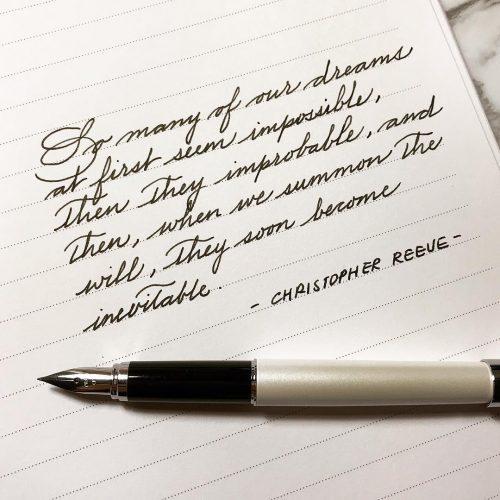 So many of our dreams
at first seem impossible,
then they improbable, and
then, when we summon the
will, they soon become
inevitable.
- CHRISTOPHER REEVE -